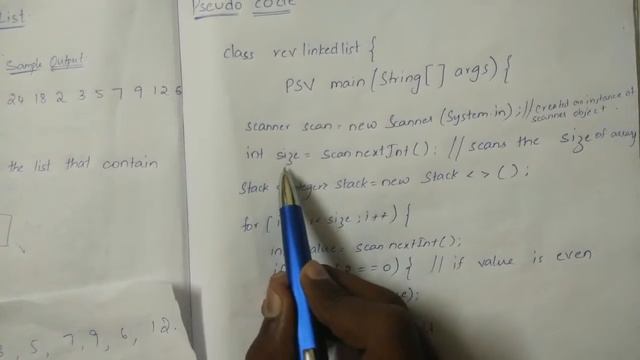 List
Sample Output
24 18 2 3 5 7 9 12 6
the list that contain
5, 7, 9, 6, 12.
Pseudo code
class revlinkedlist {
PSV main(String[] args) {
scanner scan = new Scanner(System.in); // created an instance of scanner object.
int size = scan nextInt(); // scans the size of array
Stack stack = new Stack < > ();
for ( size ; i++) {
value = scan nextInt();
== 0) { // if value is even
);